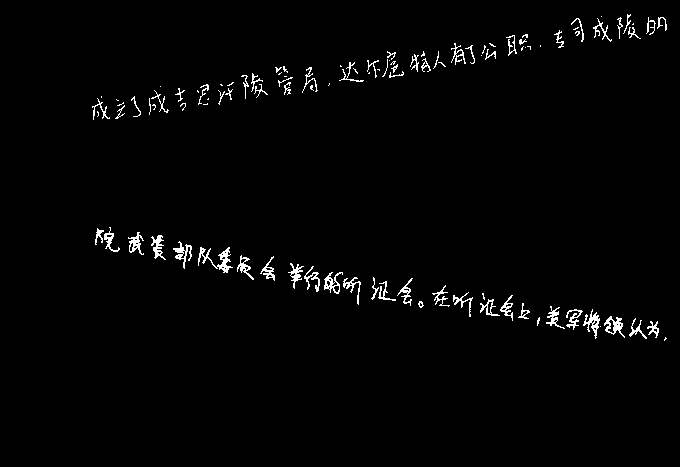 成立了成吉思汗陵管局,达尔扈特人有了公职,专司成陵的
院武装部队委员会举行的听证会。在听证会上,美军将领认为,